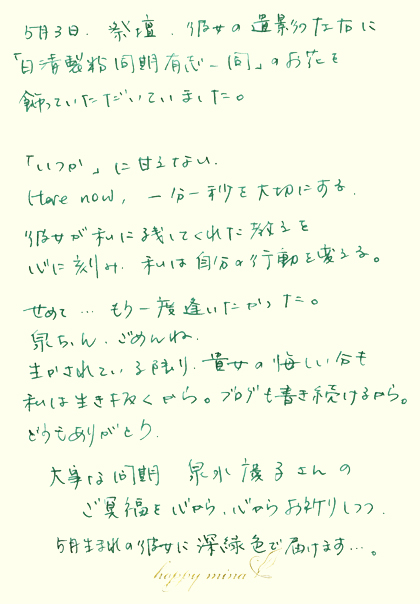 5月3日、祭壇、彼女の遺影の左右に
「日清製粉同期有志一同」のお花を
飾っていただいていました。
「いつか」に甘えない、
Here now, 一分一秒を大切にする、
彼女が私に残してくれた教えを
心に刻み、私は自分の行動を変える。
せめて…もう一度逢いたかった。
泉ちゃん、ごめんね、
生かされている限り、貴女の悔しい分も
私は生き抜くから。ブログも書き続けるから。
どうもありがとう、
大事な同期 泉水 子さんの
ご冥福を心から、心からお祈りしつつ、
5月生まれの彼女に深緑色で届けます…。
happy mina